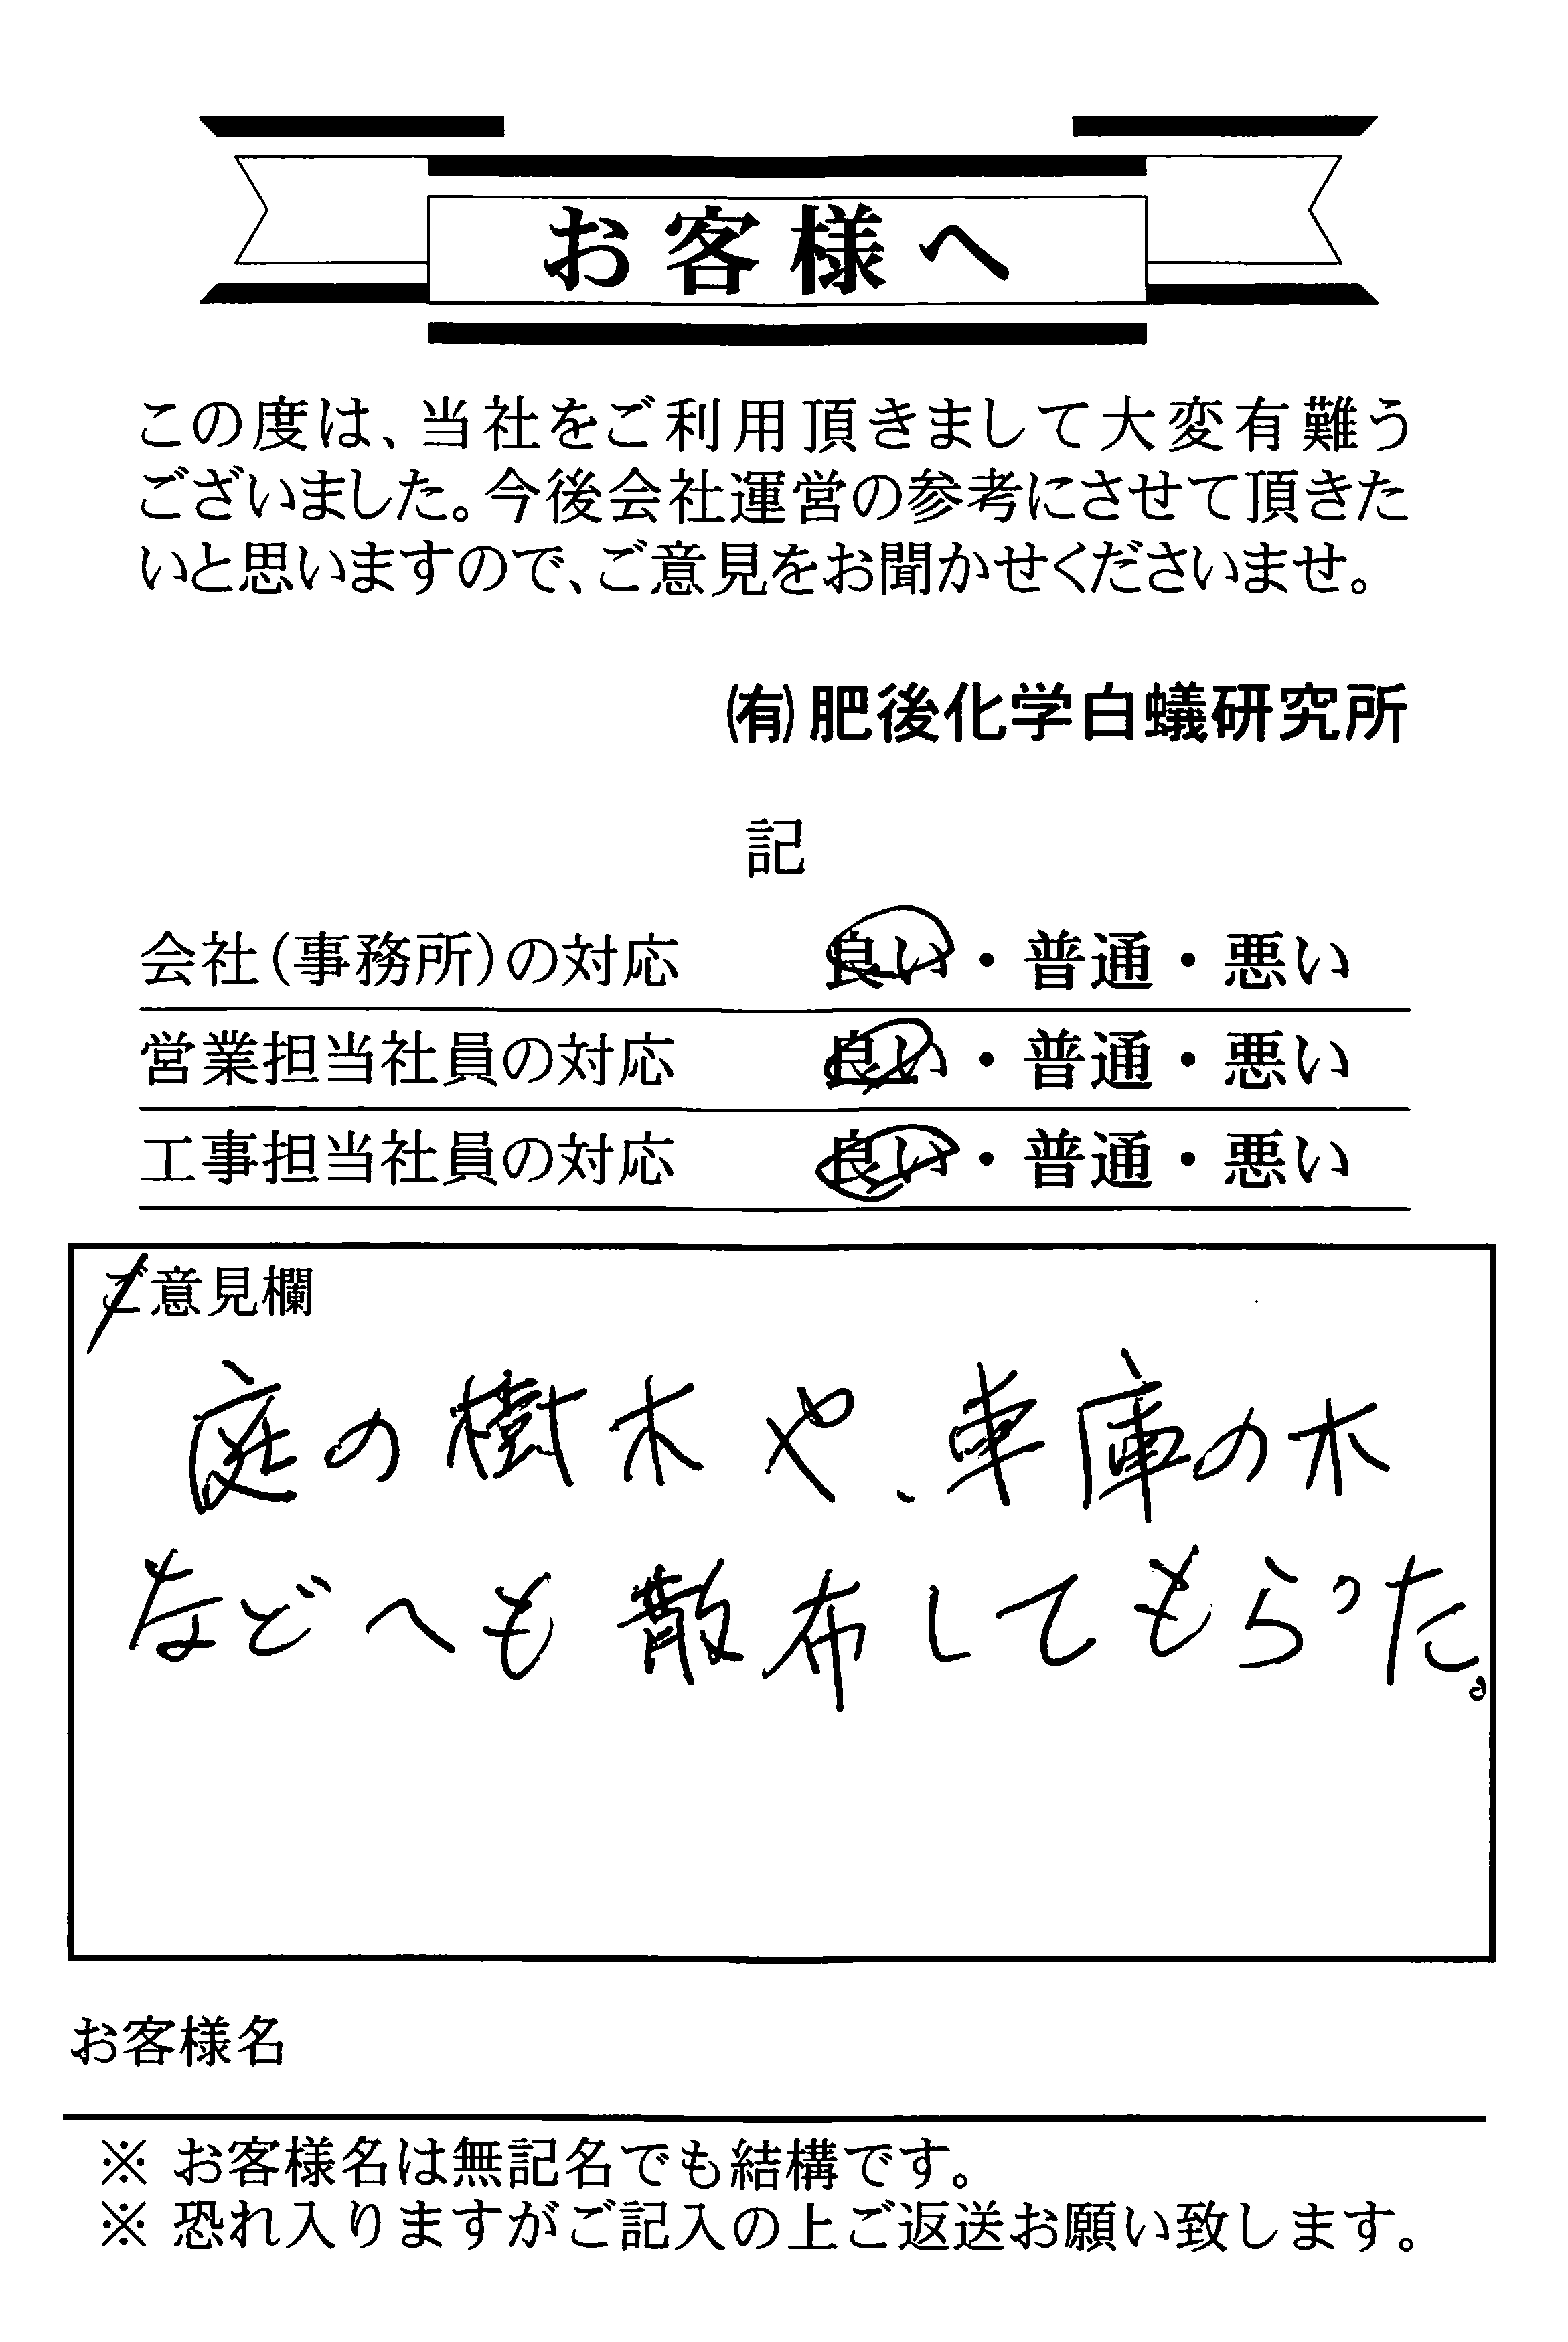 お客様へ
この度は、当社をご利用頂きまして大変有難う
ございました。今後会社運営の参考にさせて頂きた
いと思いますので、ご意見をお聞かせくださいませ。
㈲肥後化学白蟻研究所
記
会社(事務所)の対応 良い・普通・悪い
営業担当社員の対応 良い・普通・悪い
工事担当社員の対応 良い・普通・悪い
ご意見欄
庭の樹木や、車庫の木
などへも散布してもらった。
お客様名
※ お客様名は無記名でも結構です。
※ 恐れ入りますがご記入の上ご返送お願い致します。